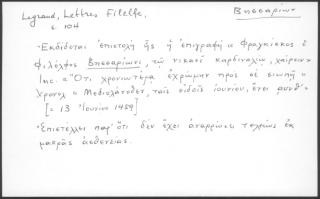 Legrand, Lettres Filelfe,
Βησσαρίων
σ. 104
Ἐκδίδεται ἐπιστολὴ ἧς ἡ ἐπιγραφὴ «Φραγκίσκος ὁ
Φιλέλφος Βησσαρίωνι, τῷ νικαεῖ καρδιναλίῳ, χαίρειν»
Inc. «Ὅτι χρονιώτερα ἐχρώμην πρὸς σὲ σιωπῇ»
ταῖς εἰδοῖς ἰουνίου, ἔτει
[= 13 Ἰουνίου 1459]
Ἐπιστέλλει παρ' ὅτι δὲν ἔχει ἀναρρώσει τελείως ἐκ
μακρᾶς ἀσθενείας.